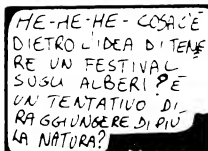 HE-HE-HE- COSA C'È
DIETRO L'IDEA DI TENE
RE UN FESTIVAL
SUGLI ALBERI? È
UN TENTATIVO DI
RAGGIUNGERE DI PIÙ
LA NATURA?